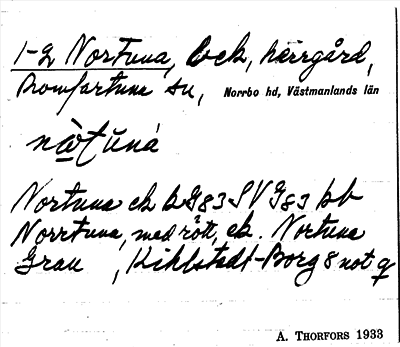 1-2 Nortuna, by, herrgård,
Romfartuna sn, Norrbo hd, Västmanlands län
nὼtŭná
Nortuna ek bG83 SV G83 bb
Norrtuna, med rött, ek. Nortuna
Grau , Kihlstedt-Borg 8 not q
A. THORFORS 1933